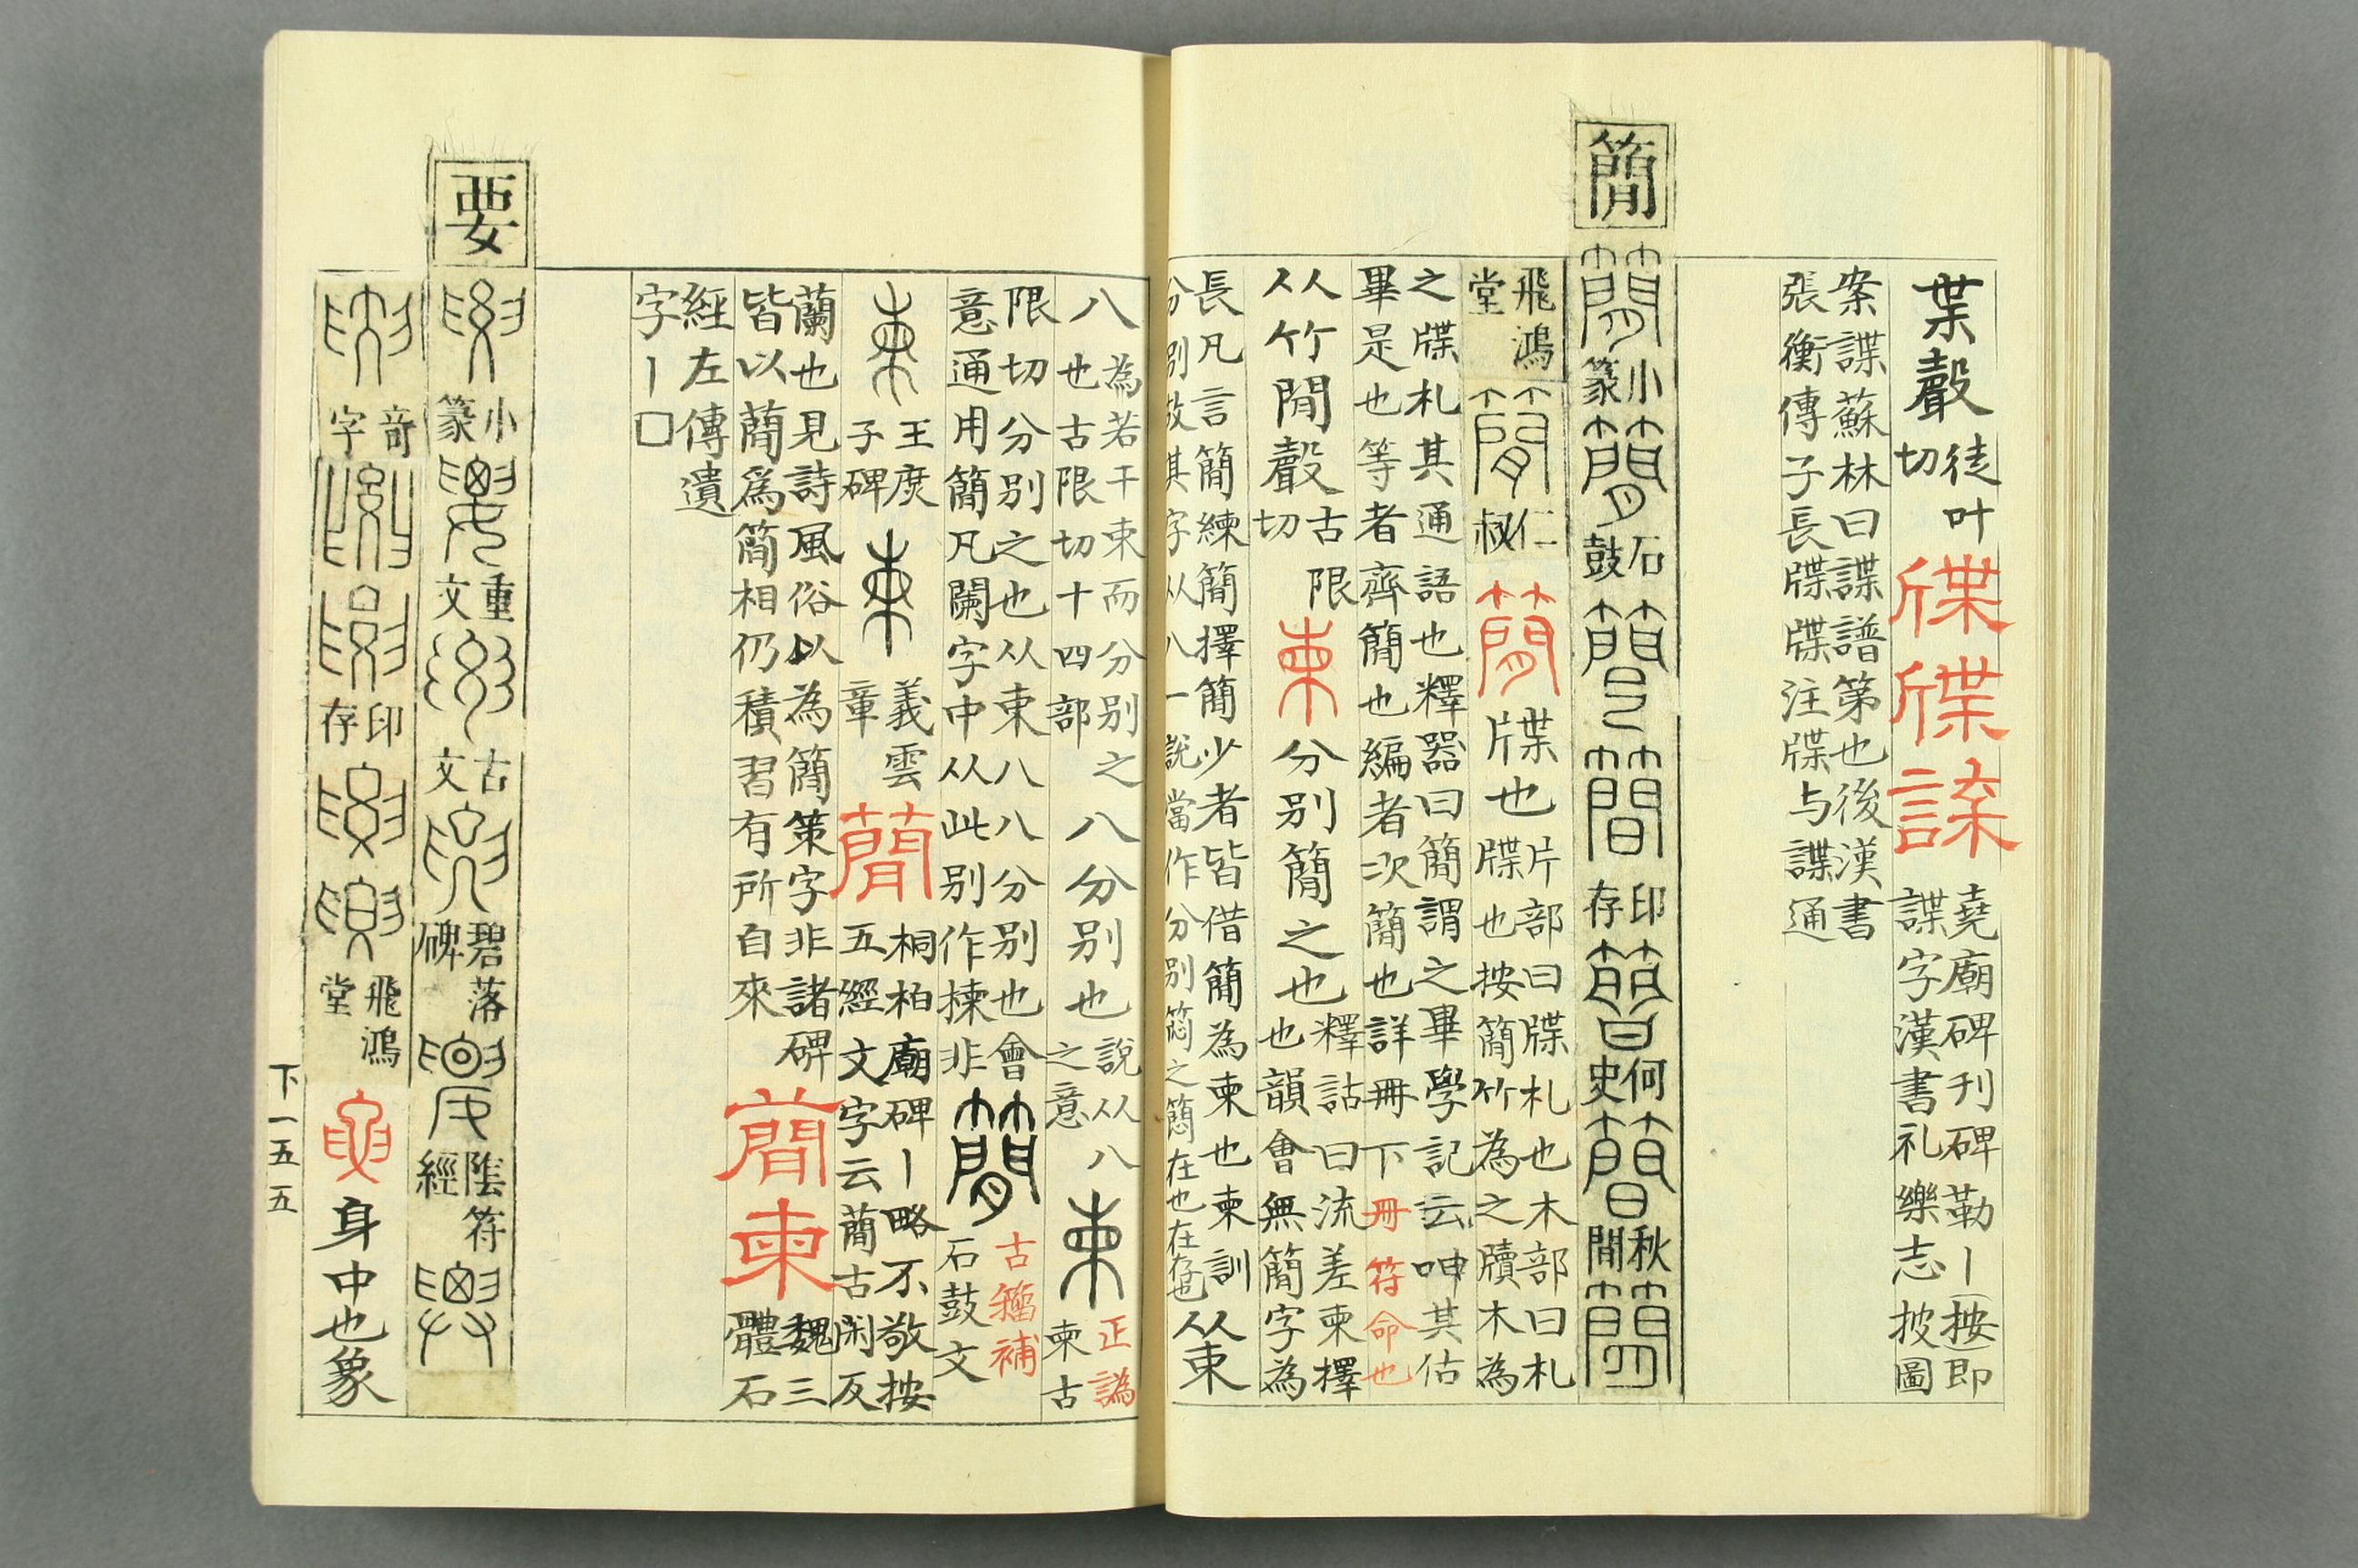 葉聲徒叶切牒牒諜堯廟碑刊碑勒丨按即諜字漢書礼樂志披圖
案諜蘇林曰諜譜第也後漢書
張衡傳子長牒牒注牒与諜通
簡
簡小篆簡石鼓簡簡印存簡何史簡秋閒簡
飛鴻堂簡仁叔簡牒也片部曰牒札也木部曰札牒也按簡竹為之牘木為
之牒札其通語也釋器曰簡謂之畢學記云呻其佔
畢是也等者齊簡也編者次簡也詳冊下冊符命也
从竹閒聲古限切柬分别簡之也釋詁曰流差柬擇也韻會無簡字為
長凡言簡練簡擇簡少者皆借簡為柬也柬訓
分别故其字从八一說當作分别簡之簡在也在存也
从束
八為若干束而分别之也古限切十四部八分别也說从八之意柬正譌柬古
限切分别之也从束八八分别也會
意通用簡凡闌字中从此别作揀非簡古籀補石鼓文
柬王庶子碑柬義雲章蕑桐柏廟碑丨略不敬按五經文字云蕑古閑反
蘭也見詩風俗以為簡策字非諸碑
皆以蕑爲簡相仍積習有所自來蕑柬魏三體石
經左傳遺
字丨□
要
要小篆要重文要古文要碧落碑要陰符經要
要奇字要要印存要要飛鴻堂要身中也象
下一五五